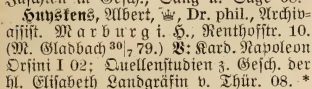 Huyskens, Albert, ♕, Dr. phil., Archiv-
assist. Marburg i. H., Renthofstr. 10.
(M. Gladbach 30/7 79.) V: Kard. Napoleon
Orsini I 02; Quellenstudien z. Gesch. der
hl. Elisabeth Landgräfin v. Thür. 08. *